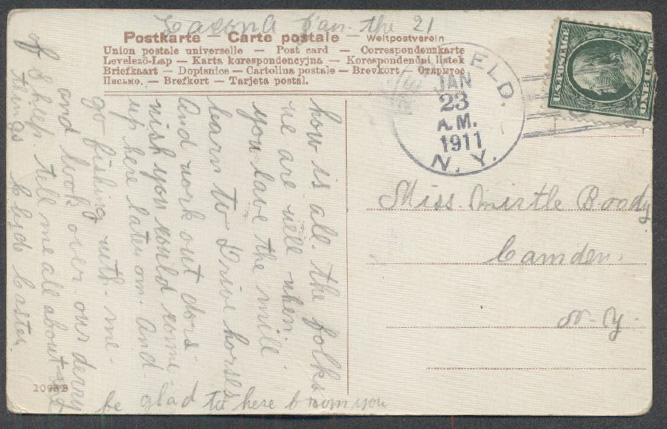 Jan. the 21
Postkarte — Carte postale — Weltpostverein
Union postale universelle — Post card — Correspondenzkarte
Levelező-Lap — Karta korespondencyjna — Korespondenční listek
Briefkaart — Dopisnice — Cartolina postale — Brevkort — Открытое
Письмо. — Brefkort — Tarjeta postal.
how is all the folks
we are well when
you leave the mill
learn to Drive horses
And work out dors
wish you would come
up here later on. And
go fishing with me.
and look over our derry
of Sheep. tell me all about
things Clyde
be glad to here from you
1098B
ELD.
JAN
23
A.M.
1911
N.Y.
Miss. mirtle Boody
Camden.
N. Y.